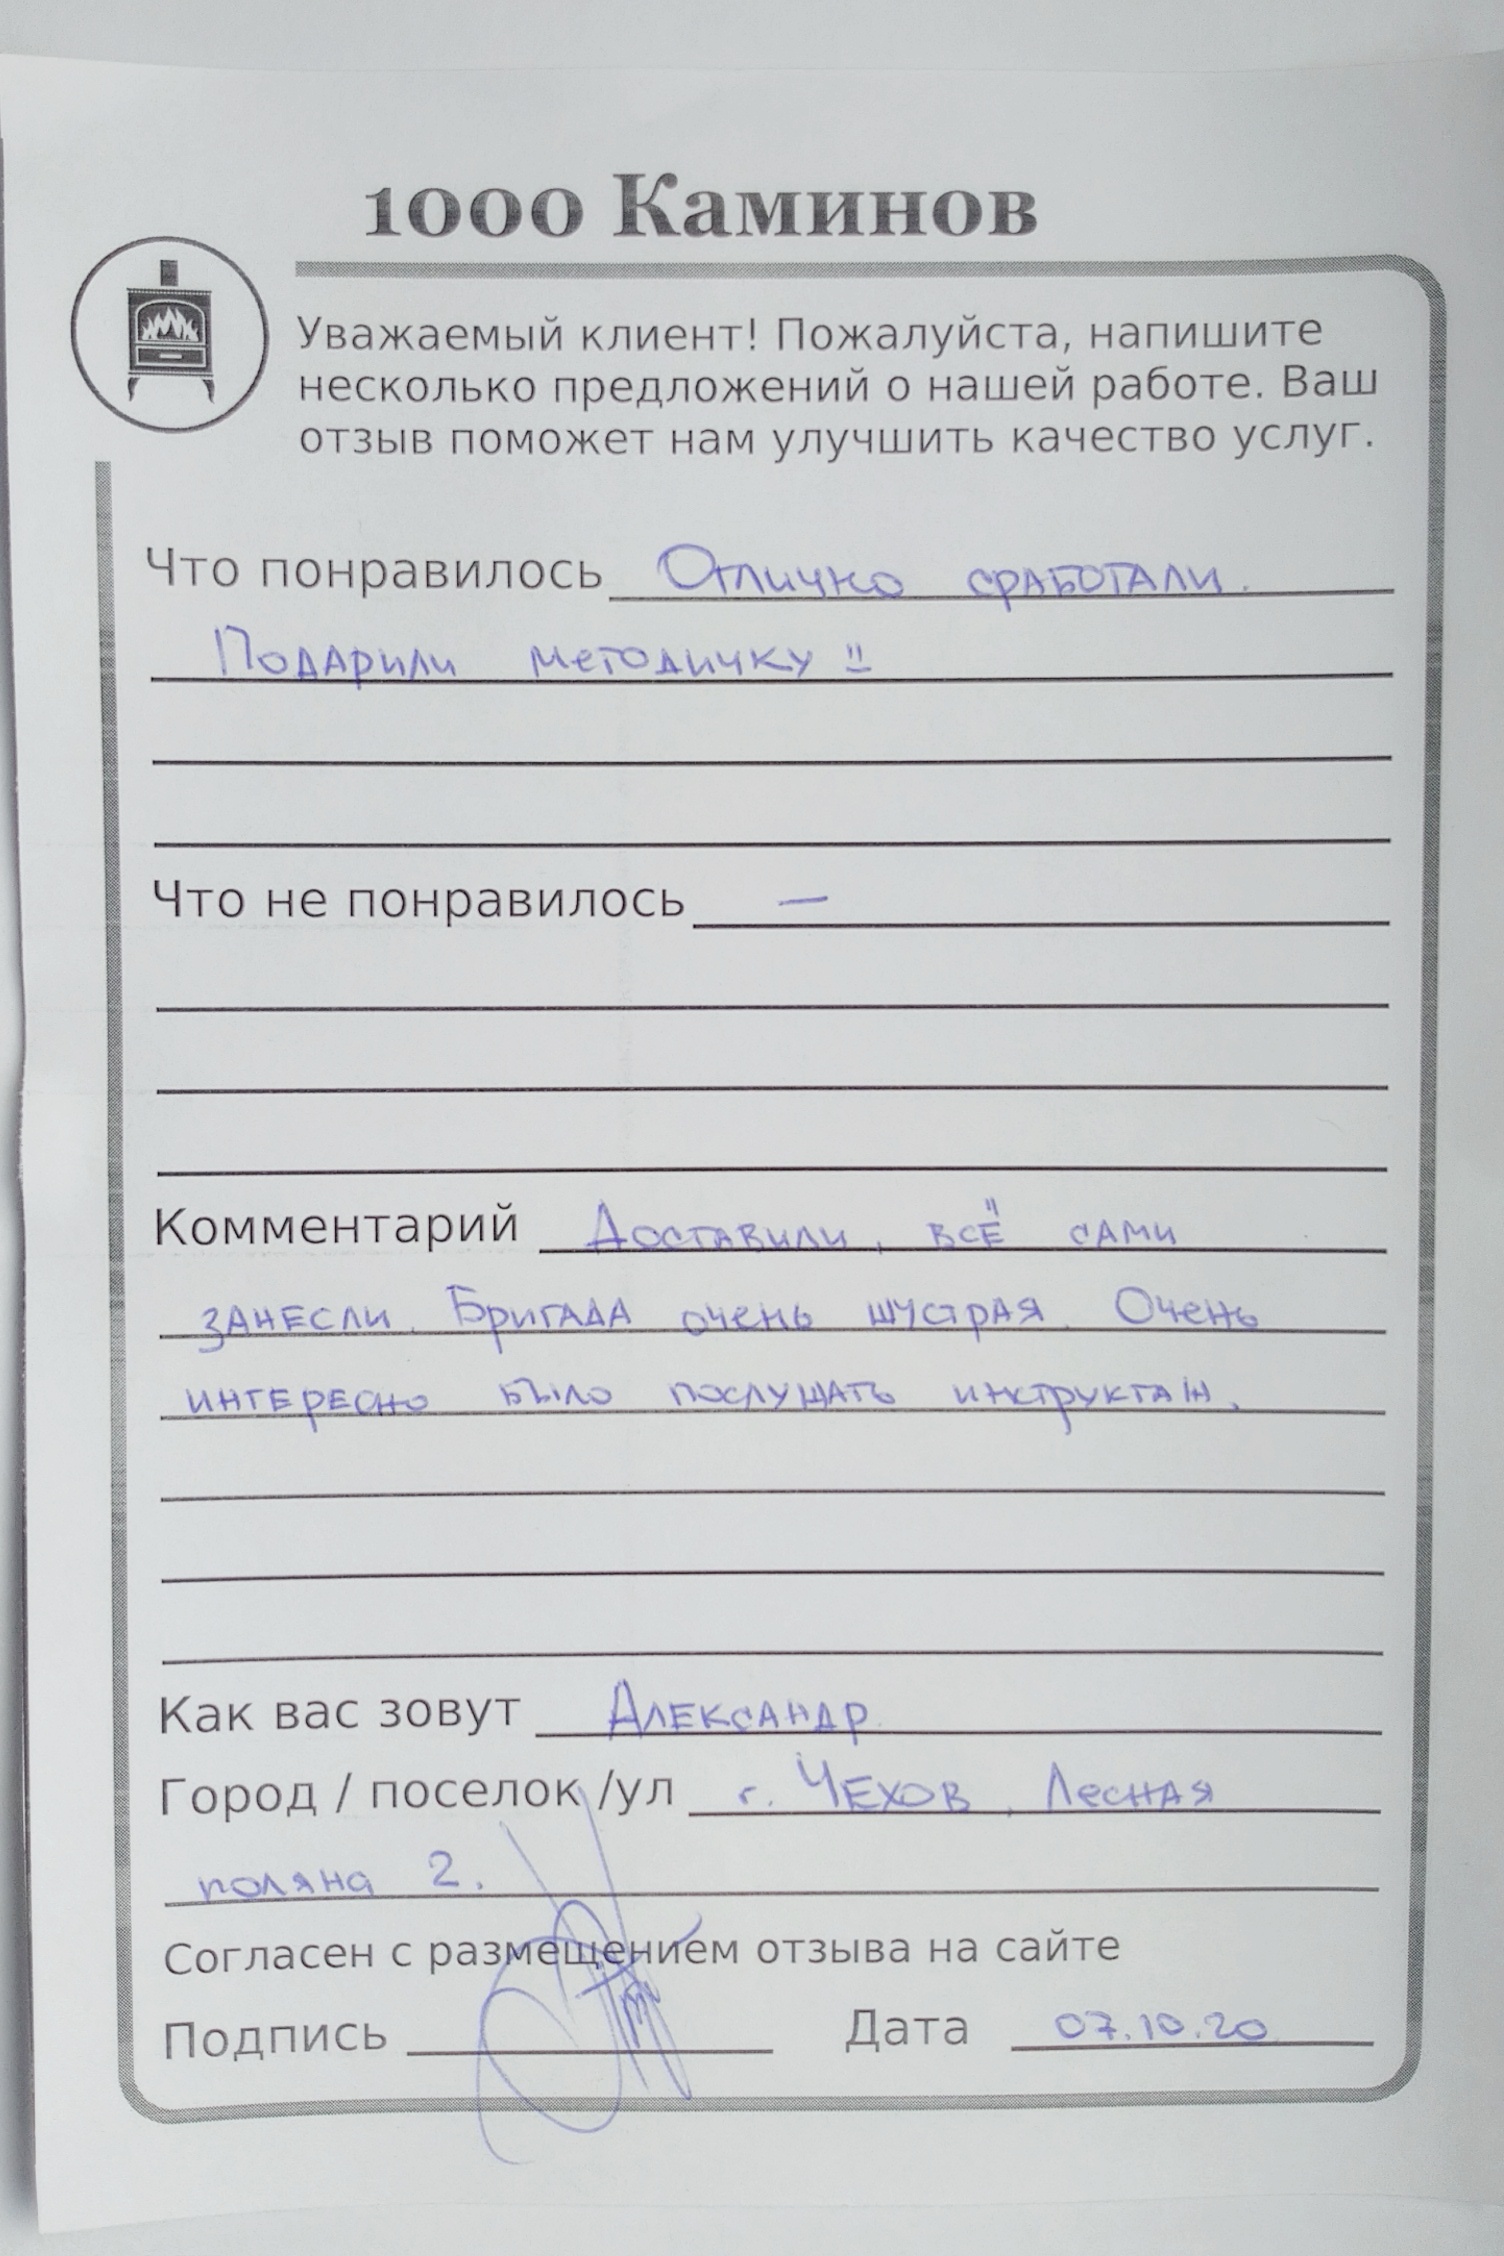 1000 Каминов
Уважаемый клиент! Пожалуйста, напишите
несколько предложений о нашей работе. Ваш
отзыв поможет нам улучшить качество услуг.
Что понравилось Отлично сработали.
Подарили методичку !!
Что не понравилось —
Комментарий Доставили, всё сами
занесли. Бригада очень шустрая. Очень
интересно было послушать инструктаж.
Как вас зовут Александр
Город / поселок /ул г. Чехов, Лесная
поляна 2.
Согласен с размещением отзыва на сайте
Подпись Дата 07.10.20